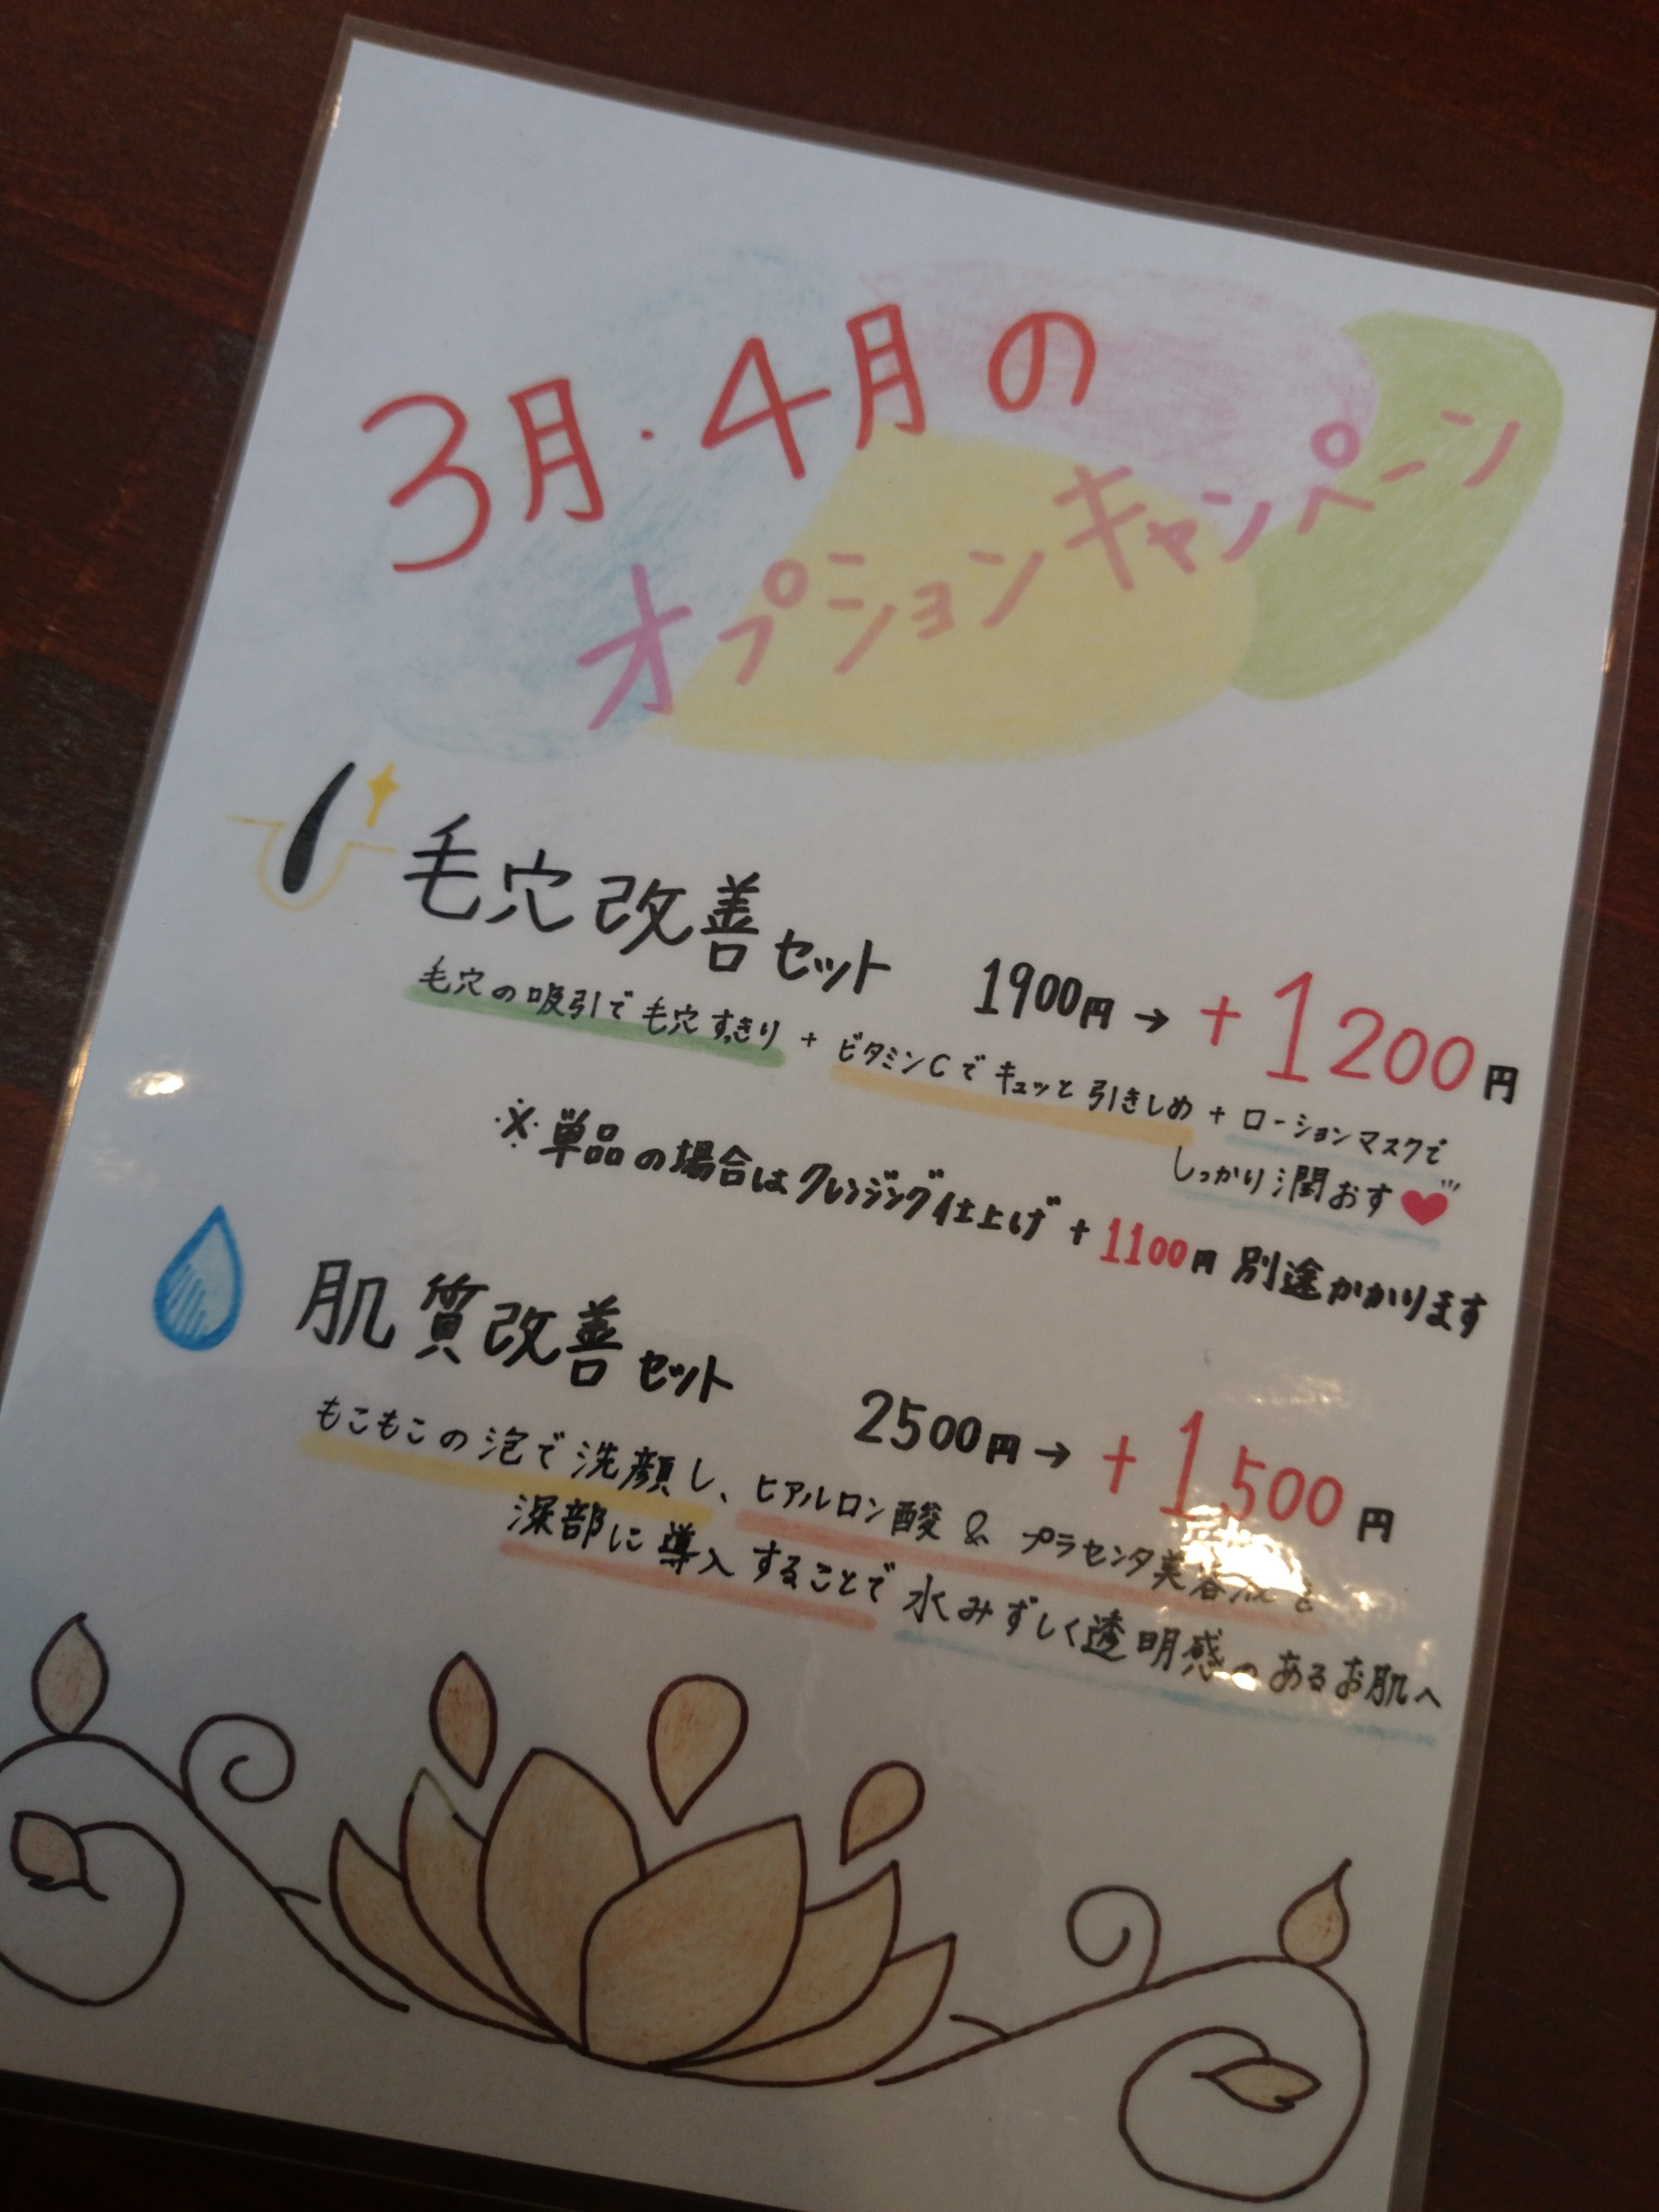 3月・4月の
オプションキャンペーン
毛穴改善セット 1900円→+1200円
毛穴の吸引で毛穴すっきり+ビタミンCでキュッと引きしめ+ローションマスクで
しっかり潤おす
※単品の場合はクレンジング仕上げ+1100円別途かかります
肌質改善セット 2500円→+1,500円
もこもこの泡で洗顔し、ヒアルロン酸&プラセンタ美容液を
深部に導入することで水みずしく透明感のあるお肌へ